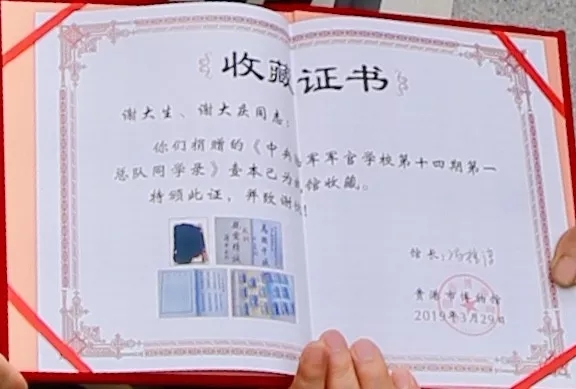 收藏证书
谢大生、谢大庆同志:
你们捐赠的《中央 军军官学校第十四期第一
总队同学录》壹本已为 馆收藏。
特颁此证,并致谢 !
馆长:
贵港市博物馆
2019年3月29日